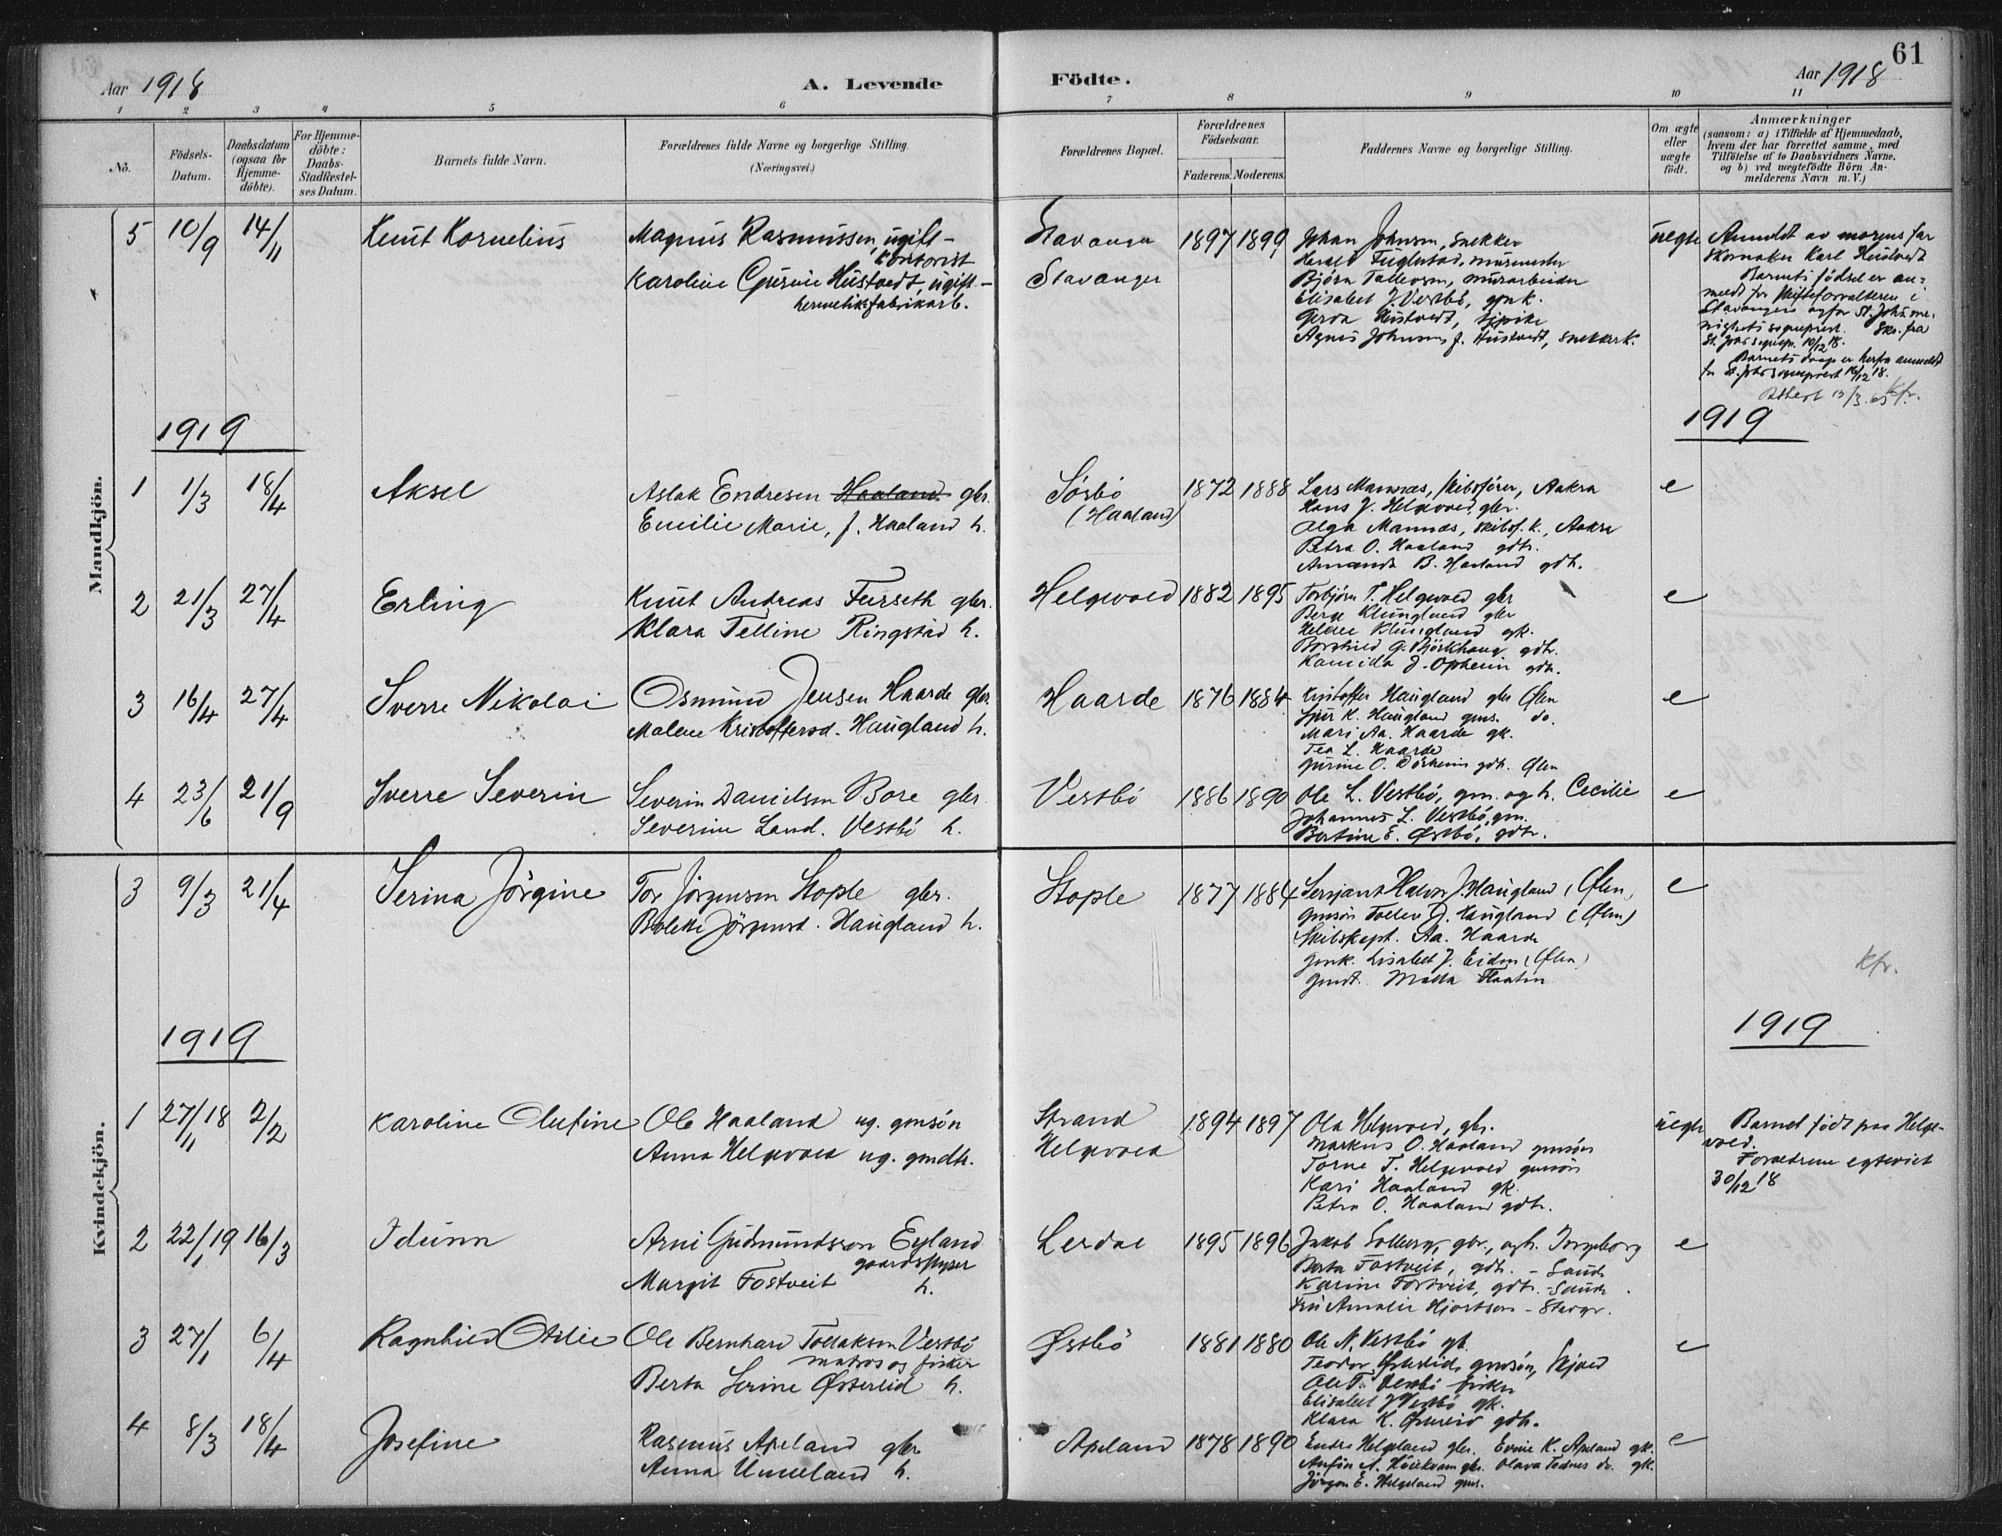 61
Aar 1918 A. Levende Födte. Aar 1918
1 2 3 4 5 6 7 8 9 10 11
No.
Födsels-Datum.
Daabsdatum (ogsaa for Hjemme-döbte).
For Hjemme-döbte: Daabs-Stadfæstel-ses Datum.
Barnets fulde Navn.
Forældrenes fulde Navne og borgerlige Stilling.
(Næringsvei.)
Forældrenes Bopæl.
Forældrenes Födselsaar.
Faderens. Moderens.
Faddernes Navne og borgerlige Stilling.
Om ægte eller uægte födt.
Anmærkninger
(saasom: a) i Tilfælde af Hjemmedaab,
hvem der har forrettet samme, med
Tilföielse af to Daabsvidners Navne,
og b) ved uægtefödte Börn An-
melderens Navn m. V.)
Mandkjön.
5 10/9 14/11 Knut Kornelius
Magnus Rasmussen, ugift -
kontorist
Karoline Gurine Hustvedt, ugift -
hermetikfabrikarb.
Stavanger
Stavanger
1897 1899
Johan Johnsen, snekker
Harald Fuglestad, murmester
Björn Tallevsen, murarbeider
Elisabet J. Vestbö, gmk.
Gerda Hustvedt, pike
Agnes Johnsen f. Hustvedt, snekkerk.
uegte
Anmeldt av morens far
Skomaker Karl Hustvedt
Barnets födsel er an-
meldt for skifteforvalteren i
Stavanger
Barnets daap er herfra anmeldt
16/12 18.
kfr.
1919 1919
1 1/3 18/4 Aksel
Aslak Endresen Haaland gbr.
Emilie Marie, f. Haaland h.
Sørbö
(Haaland)
1872 1888
Lars Mannes, skibsfører, Aakra
Hans J. Helgevold gbr.
Olga Mannes, skibsf. k., Aakra
Petra O. Haaland gdtr.
Amanda B. Haaland gdt.
e
2 21/3 27/4 Erling
Knut Andreas Furseth gbr.
Klara Telline Ringstad h.
Helgevold 1882 1895
Torbjörn T. Helgevold gbr
Berge Klungland gbr
Helene Klungland gk.
Borghild G. Björkhaug gdt.
Kamilla J. Opheim gdt.
e
3 16/4 27/4 Sverre Nikolai
Osmund Jensen Haarde gbr.
Malene Kristoffersd. Haugland h.
Haarde 1876 1884
Kristoffer Haugland gbr Ølen
Sjur K. Haugland gms. do.
Mari Aa. Haarde gk.
Tea L. Haarde
Gurine O. Dörheim gdt. Ølen
e
4 23/6 21/9 Sverre Severin
Severin Danielsen Bore gbr.
Severine Land. Vestbö h.
Vestbö 1886 1890
Ole L. Vestbö, gm. og h. Cecilie
Johannes L. Vestbö, gm.
Bertine E. Østbö, gdtr.
e
Kvindekjön.
3 9/3 21/4 Serina Jörgine
Tor Jörgensen Stople gbr.
Bolette Jörgensd. Haugland h.
Stople 1877 1884
Sersjant Halvor J. Haugland (Ølen)
gmsön Tollev J. Haugland (Ølen)
Skibskapt. Aa. Haarde
gmk. Lisabet J. Eiden (Ølen)
gmdt. Malla Flaaten
e
kfr.
1919 1919
1 27/11 18 2/2 Karoline Olufine
Ole Haaland ug. gmsön
Anna Helgevold ug. gmdtr.
Strand
Helgevold
1894 1897
Ola Helgevold, gbr.
Markus O. Haaland gmsön
Torne T. Helgevold gmsön
Kari Haaland gk.
Petra O. Haaland gdtr.
uegte
Barnet födt paa Helge-
vold.
Foreldrene egteviet
30/12 18
2 22/1 19 16/3 Idunn
Arni Gudmundsson Eyland
gaardstyrer
Margit Fostveit h.
Lerdal 1895 1896
Jakob Solberg, gbr., og h. Ingeborg
Berta Fostveit, gdt. - Saude
Karine Fostveit, gdt. - Saude
Fru Amalie Hjortsen - Stavgr.
e
3 27/1 6/4 Ragnhild Otelie
Ole Bernhard Tollaksen Vestbö
matros og fisker
Berta Serine Østereid h.
Østbö 1881 1880
Ole N. Vestbö gk.
Teodor Østereid, gmsön, Skjold
Ole T. Vestbö fisker
Elisabet J. Vestbö gk.
Klara K. Østereid gdtr.
e
4 8/3 18/4 Josefine
Rasmus Apeland gbr
Anna Ummeland h.
Apeland 1878 1890
Endre Helgeland gbr. Evine K. Apeland gk.
Anfin A. Höiekvam gbr. Olava Tednes do. gk.
Jörgen E. Helgeland gms.
e